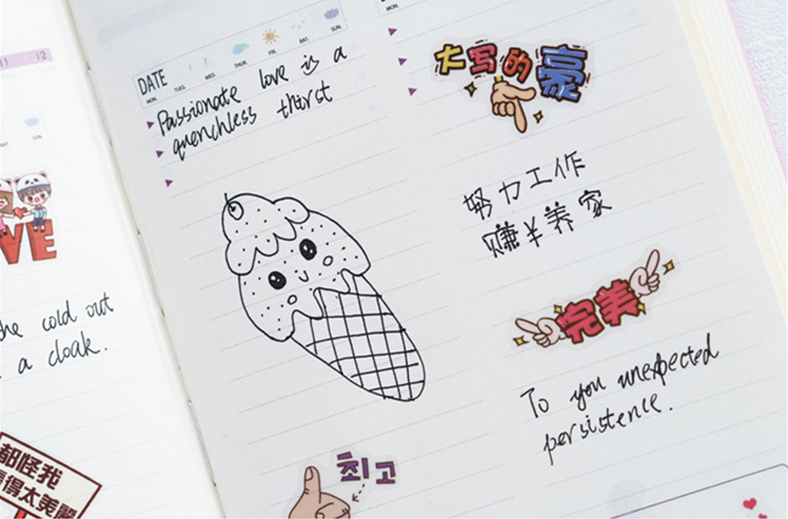 11 12
SUN.
VE
he cold out
a cloak.
都怪我
得太美麗
DATE
MON. TUES. WED. THUR. FRI. SAT. SUN.
Passionate love is a
quenchless thirst
최고
MON.
大写的豪
努力工作
赚¥养家
完美
To you unexpected
persistence.